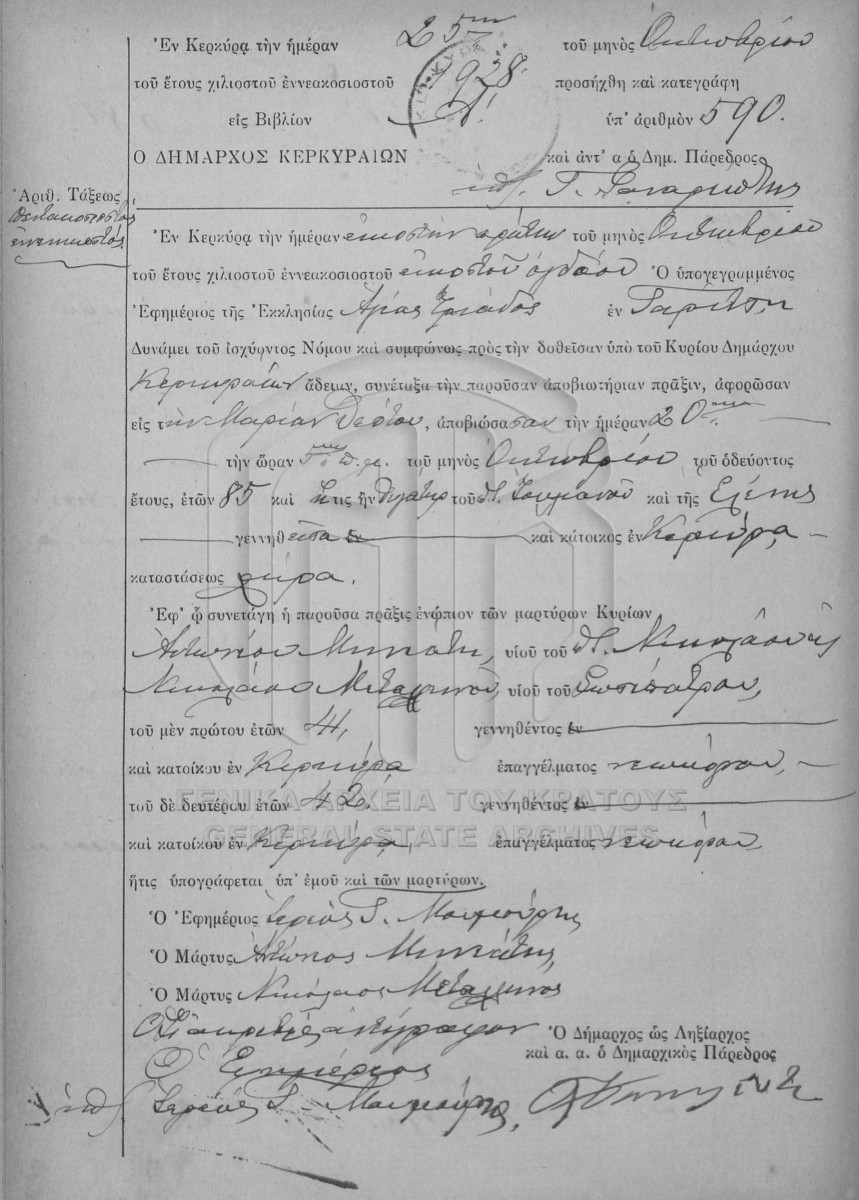 Ἐν Κερκύρᾳ τὴν ἡμέραν 25ην τοῦ μηνὸς Ὀκτωβρίου
τοῦ ἔτους χιλιοστοῦ ἐννεακοσιοστοῦ 1928. προσήχθη καὶ κατεγράφη
εἰς Βιβλίον Α! ὑπ' ἀριθμὸν 590.
Ο ΔΗΜΑΡΧΟΣ ΚΕΡΚΥΡΑΙΩΝ καὶ ἀντ' α ὁ Δημ. Πάρεδρος
Ἀριθ. Τάξεως
πεντακοσιοστὸς
ἐνενηκοστός
Ἐν Κερκύρᾳ τὴν ἡμέραν εἰκοστὴν πρώτην τοῦ μηνὸς Ὀκτωβρίου
τοῦ ἔτους χιλιοστοῦ ἐννεακοσιοστοῦ εἰκοστοῦ ὀγδόου Ὁ ὑπογεγραμμένος
Ἐφημέριος τῆς Ἐκκλησίας Ἁγίας Τριάδος ἐν Γαρίτσῃ
Δυνάμει τοῦ ἰσχύοντος Νόμου καὶ συμφώνως πρὸς τὴν δοθεῖσαν ὑπὸ τοῦ Κυρίου Δημάρχου
Κερκυραίων ἄδειαν, συνέταξα τὴν παροῦσαν ἀποβιωτήριαν πρᾶξιν, ἀφορῶσαν
εἰς τὴν Μαρίαν, ἀποβιώσασαν τὴν ἡμέραν 20ην
τὴν ὥραν 5ην π.μ. τοῦ μηνὸς Ὀκτωβρίου τοῦ ὁδεύοντος
ἔτους, ἐτῶν 85 καὶ ἥτις ἦν θυγάτηρ τοῦ π. καὶ τῆς Ἑλένης
γεννηθεῖσα ἐν καὶ κάτοικος ἐν Κερκύρᾳ
καταστάσεως χήρα.
Ἐφ' ᾧ συνετάγη ἡ παροῦσα πρᾶξις ἐνώπιον τῶν μαρτύρων Κυρίων
Ἀντωνίου, υἱοῦ τοῦ π. Νικολάου &
Νικολάου Μεταλληνοῦ, υἱοῦ τοῦ Σωσιπάτρου,
τοῦ μὲν πρώτου ἐτῶν 41, γεννηθέντος ἐν
καὶ κατοίκου ἐν Κερκύρᾳ ἐπαγγέλματος νεωκόρου,
τοῦ δὲ δευτέρου ἐτῶν 42, γεννηθέντος ἐν
καὶ κατοίκου ἐν Κερκύρᾳ, ἐπαγγέλματος νεωκόρου,
ἥτις ὑπογράφεται ὑπ' ἐμοῦ καὶ τῶν μαρτύρων.
Ὁ Ἐφημέριος Ἱερεὺς
Ὁ Μάρτυς Ἀντώνιος
Ὁ Μάρτυς Νικόλαος Μεταλληνός
ἀντίγραφον
Ὁ Ἐφημέριος
Ἱερεὺς
Ὁ Δήμαρχος ὡς Ληξίαρχος
καὶ α. α. ὁ Δημαρχικὸς Πάρεδρος
ΓΕΝΙΚΑ ΑΡΧΕΙΑ ΤΟΥ ΚΡΑΤΟΥΣ
GENERAL STATE ARCHIVES